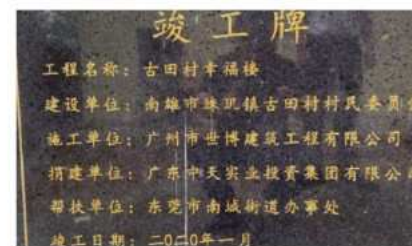 竣工牌
工程名称：古田村幸福楼
建设单位：南雄市珠玑镇古田村村民委员
施工单位：广州市世博建筑工程有限公司
捐建单位：广东中天实业投资集团有限公
帮扶单位：东莞市南城街道办事处
竣工日期：二〇二〇年一月